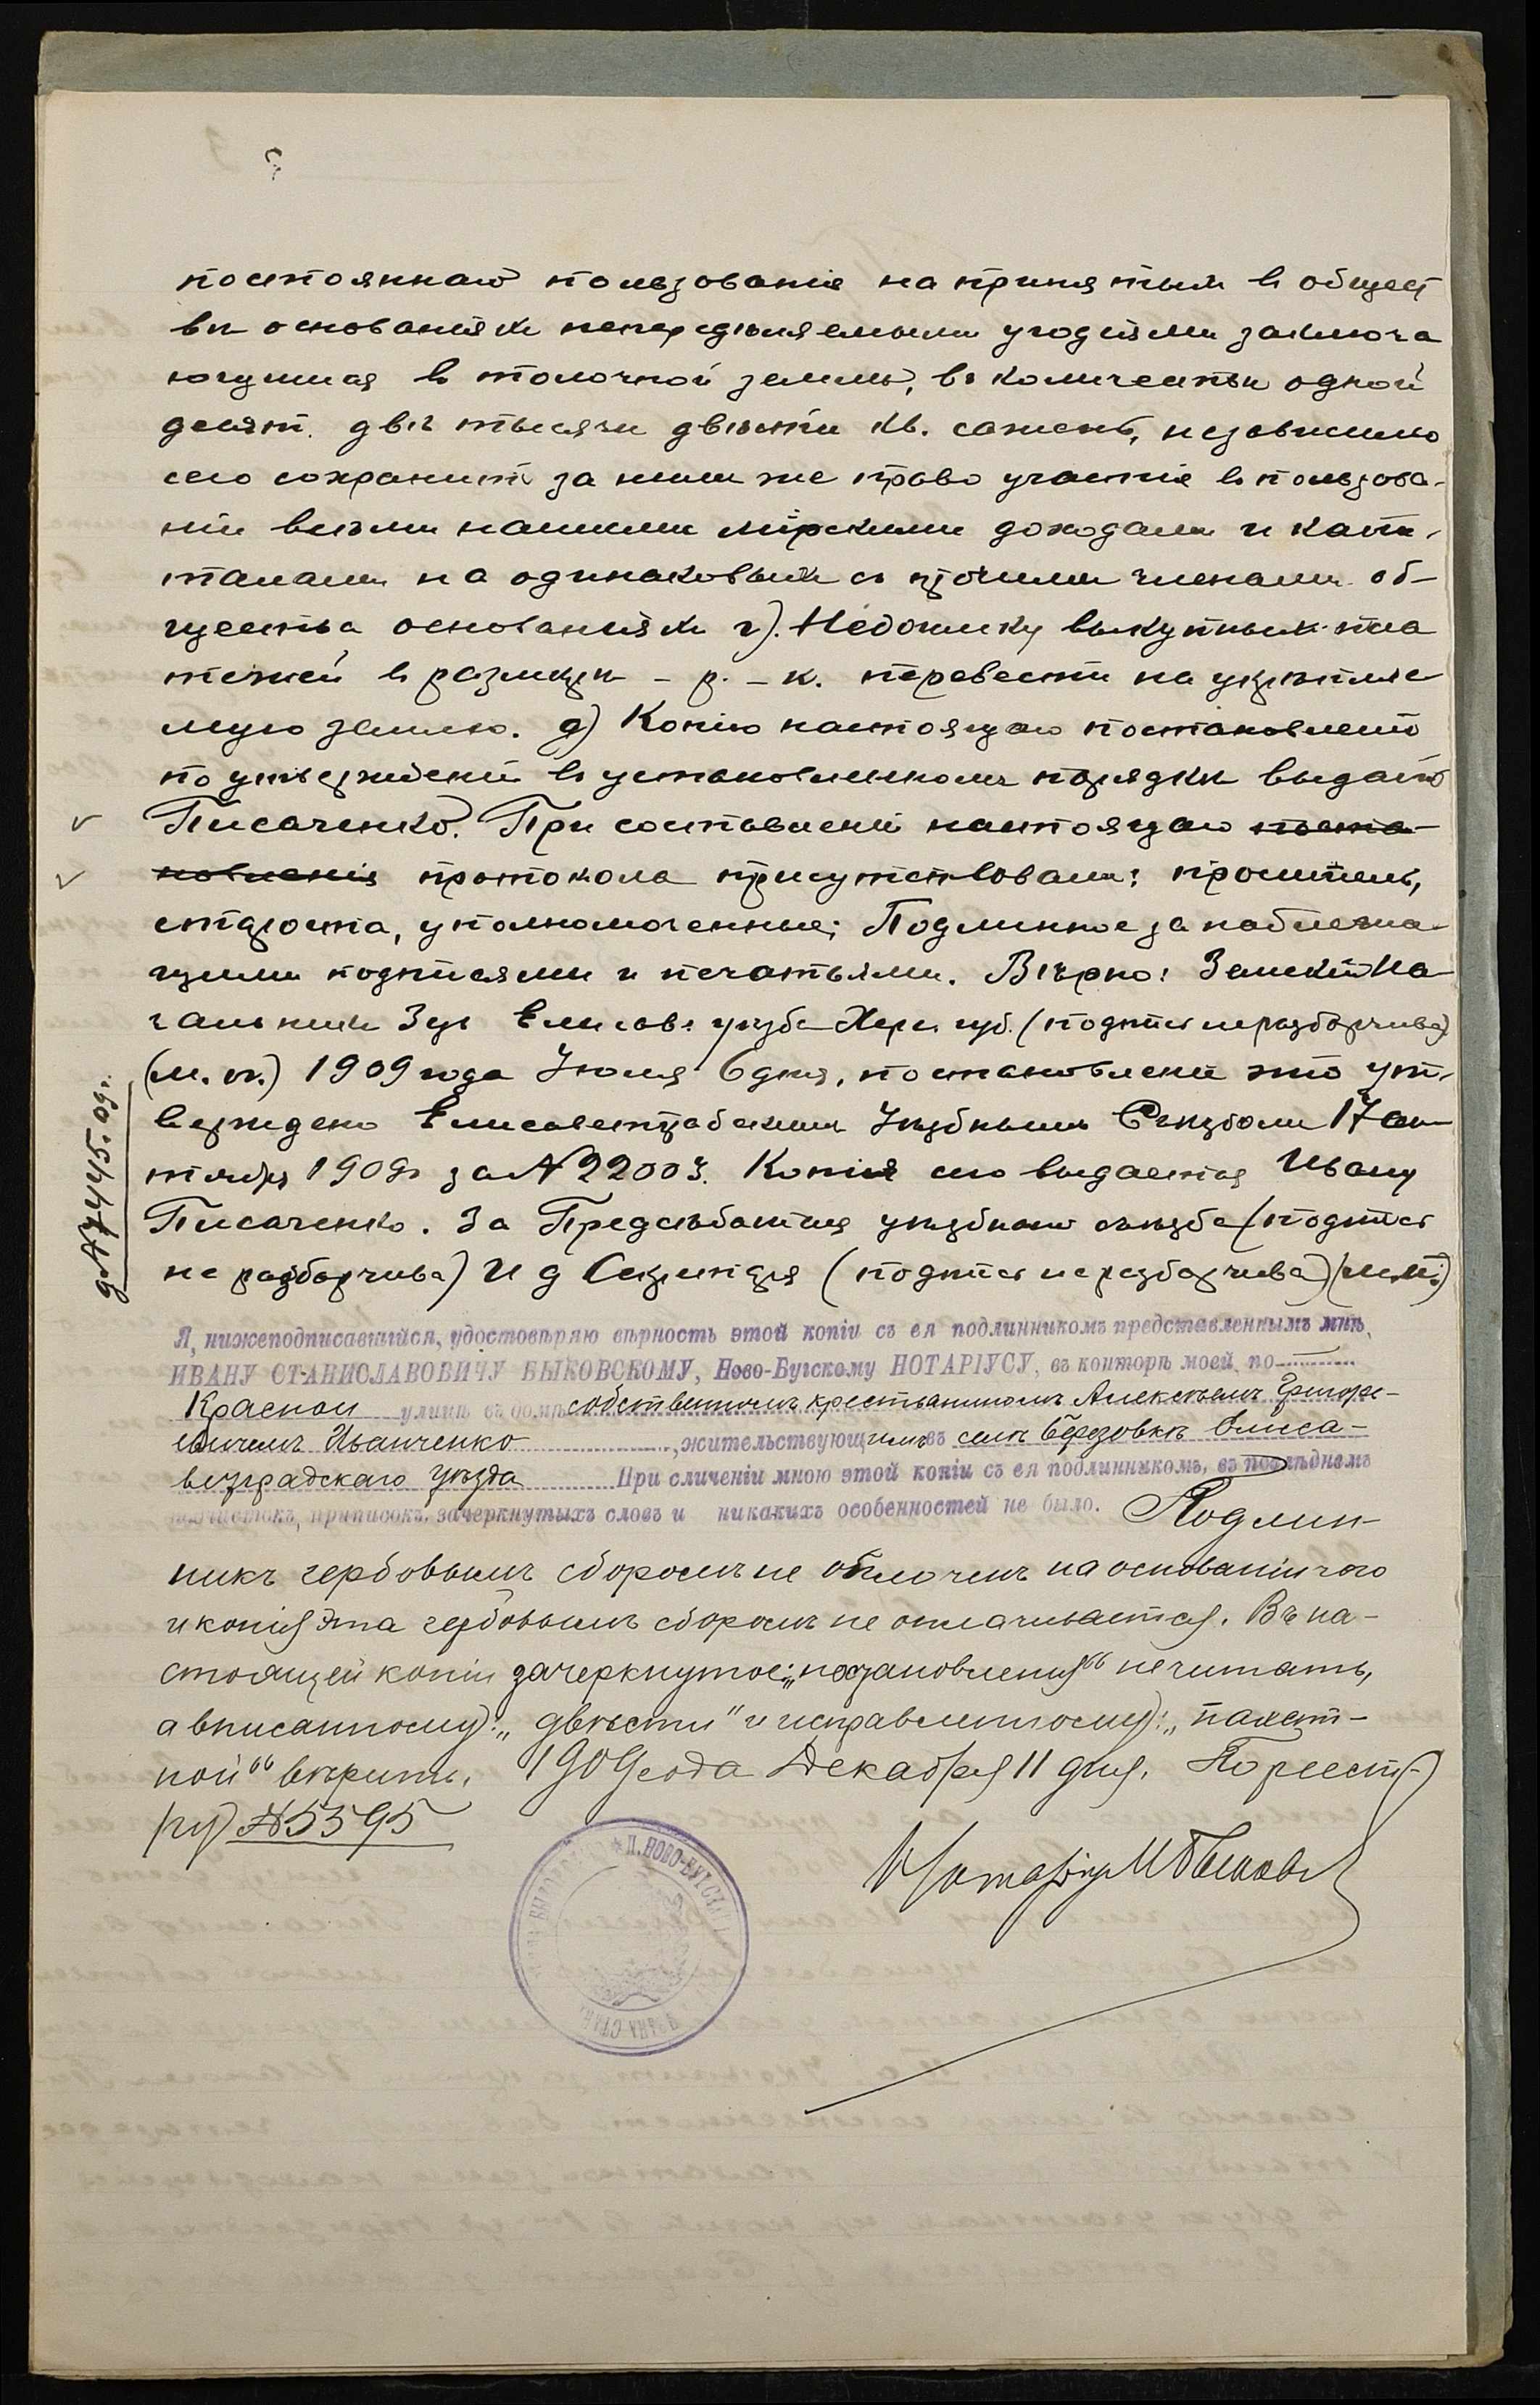 постояннаго пользованія на принятыхъ въ общест
вѣ основаніяхъ непередѣляемыми угодіями заключа
ющимися въ толочной землѣ, въ количествѣ одной
десят. двѣ тысячи двѣсти кв. сажень, независимо
сего сохранить за нимъ же право участія въ пользова-
ніи всѣми нашими мірскими доходами и капи-
талами на одинаковыхъ съ прочими членами об-
щества основаніяхъ г). Недоимку выкупныхъ пла
тежей въ размѣрѣ - р. - к. перевести на укрѣпляе
мую землю. д) Копію настоящаго постановленія
по утвержденіи въ установленномъ порядкѣ выдать
Писаченко. При составленіи настоящаго поста-
новленія протокола присутствовали: проситель,
староста, уполномоченные; Подлинное за надлежа-
щими подписями и печатьями. Вѣрно: Земскій На-
чальникъ 3 уч Елисав. уѣзда Херс. губ. (подпись неразборчива)
(м. п.) 1909 года Іюля 6 дня, постановленіе это ут-
верждено Елисаветградскимъ Уѣзднымъ Съѣздомъ 17 сен
тября 1909 г за № 22003. Копія сія выдается Ивану
Писаченко. За Предсѣдателя уѣзднаго съѣзда (подпись
не разборчива) И д Секретаря (подпись неразборчива) (м.п.)
д. № 7445. 09 г.
Я, нижеподписавшійся, удостовѣряю вѣрность этой копіи съ ея подлинникомъ представленнымъ мнѣ,
ИВАНУ СТАНИСЛАВОВИЧУ БЫКОВСКОМУ, Ново-Бугскому НОТАРІУСУ, въ конторѣ моей, по
Красной улицѣ въ домѣ собственномъ крестьяниномъ Алексѣемъ Григорь-
евичемъ Иванченко, жительствующимъ въ селѣ Березовкѣ Елиса-
ветградскаго уѣзда При сличеніи мною этой копіи съ ея подлинникомъ, въ послѣднемъ
подчистокъ, приписокъ, зачеркнутыхъ словъ и никакихъ особенностей не было. Подлин-
никъ гербовымъ сборомъ не оплоченъ на основаніи чего
и копія эта гербовымъ сборомъ не оплачивается. Въ на-
стоящей копіи зачеркнутое: „постановленія“ не читать,
а вписанному: „двѣсти“ и исправленному: „пахат-
ной“ вѣрить. 1909 года Декабря 11 дня. По реест-
ру № 5395
Нотаріусъ И Быковскій